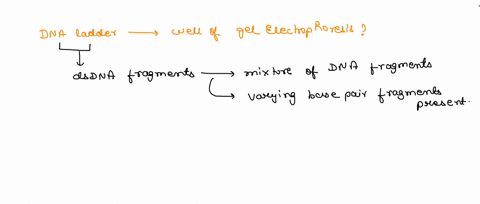 DNA ladder → well of gel ElectopRoresis?
dsDNA fragments → mixture of DNA fragments
→ varying base pair fragments
present.